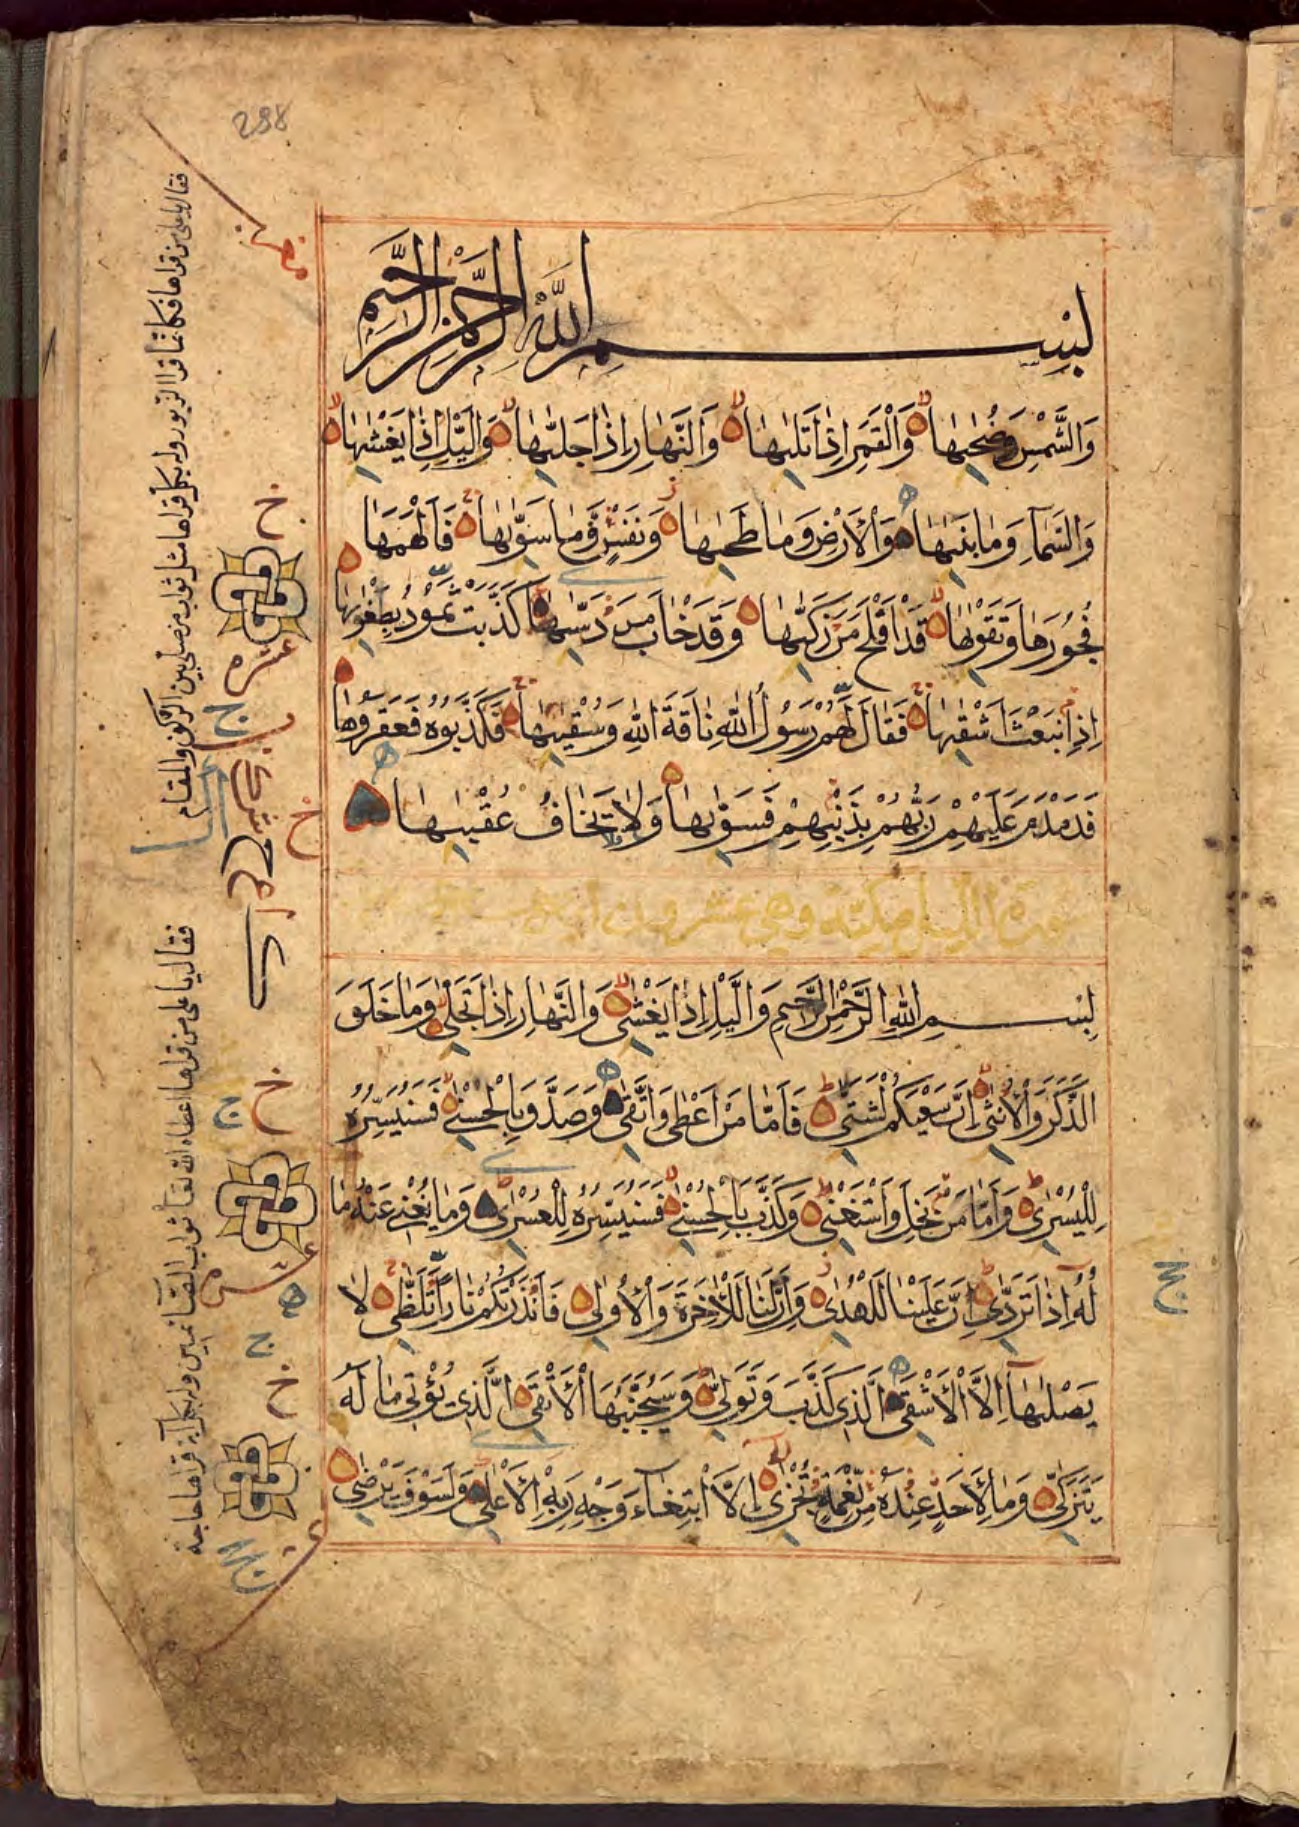 298
بِسْمِ اللَّهِ الرَّحْمٰنِ الرَّحِيمِ
وَالشَّمْسِ وَضُحٰيهَا وَالْقَمَرِ اِذَا تَلٰيهَا وَالنَّهَارِ اِذَا جَلّٰيهَا وَالَّيْلِ اِذَا يَغْشٰيهَا
وَالسَّمَآءِ وَمَا بَنٰيهَا وَالْاَرْضِ وَمَا طَحٰيهَا وَنَفْسٍ وَّمَا سَوّٰيهَا فَاَلْهَمَهَا
فُجُورَهَا وَتَقْوٰيهَا قَدْ اَفْلَحَ مَنْ زَكّٰيهَا وَقَدْ خَابَ مَنْ دَسّٰيهَا كَذَّبَتْ ثَمُودُ بِطَغْوٰيهَا
اِذِ انْبَعَثَ اَشْقٰيهَا فَقَالَ لَهُمْ رَسُولُ اللّٰهِ نَاقَةَ اللّٰهِ وَسُقْيٰيهَا فَكَذَّبُوهُ فَعَقَرُوهَا
فَدَمْدَمَ عَلَيْهِمْ رَبُّهُمْ بِذَنْبِهِمْ فَسَوّٰيهَا وَلَا يَخَافُ عُقْبٰيهَا
سورة الليل مكية وهي عشرون احدى اية
بِسْمِ اللّٰهِ الرَّحْمٰنِ الرَّحِيمِ وَالَّيْلِ اِذَا يَغْشٰى وَالنَّهَارِ اِذَا تَجَلّٰى وَمَا خَلَقَ
الذَّكَرَ وَالْاُنْثٰى اِنَّ سَعْيَكُمْ لَشَتّٰى فَاَمَّا مَنْ اَعْطٰى وَاتَّقٰى وَصَدَّقَ بِالْحُسْنٰى فَسَنُيَسِّرُهُ
لِلْيُسْرٰى وَاَمَّا مَنْ بَخِلَ وَاسْتَغْنٰى وَكَذَّبَ بِالْحُسْنٰى فَسَنُيَسِّرُهُ لِلْعُسْرٰى وَمَا يُغْنِى عَنْهُ مَا
لُهُٓ اِذَا تَرَدّٰى اِنَّ عَلَيْنَا لَلْهُدٰى وَاِنَّ لَنَا لَلْاٰخِرَةَ وَالْاُولٰى فَاَنْذَرْتُكُمْ نَارًا تَلَظّٰى لَا
يَصْلٰيهَآ اِلَّا الْاَشْقَى الَّذِى كَذَّبَ وَتَوَلّٰى وَسَيُجَنَّبُهَا الْاَتْقَى الَّذِى يُؤْتِى مَا لَهُ
يَتَزَكّٰى وَمَا لِاَحَدٍ عِنْدَهُ مِنْ نِّعْمَةٍ تُجْزٰى اِلَّا ابْتِغَآءَ وَجْهِ رَبِّهِ الْاَعْلٰى وَلَسَوْفَ يَرْضٰى
فقال يا على من قراها فكانما قرا الزبور وله بكل آية قراها مثل ثواب من صلى بين الركن والمقام
فقال يا على من قراها اعطاه الله تعا ثواب القائمين وله بكل آية قراها حاجة
خ
عشره
ج
خ
خ
ج
عشر
ه
ج
خ
ج